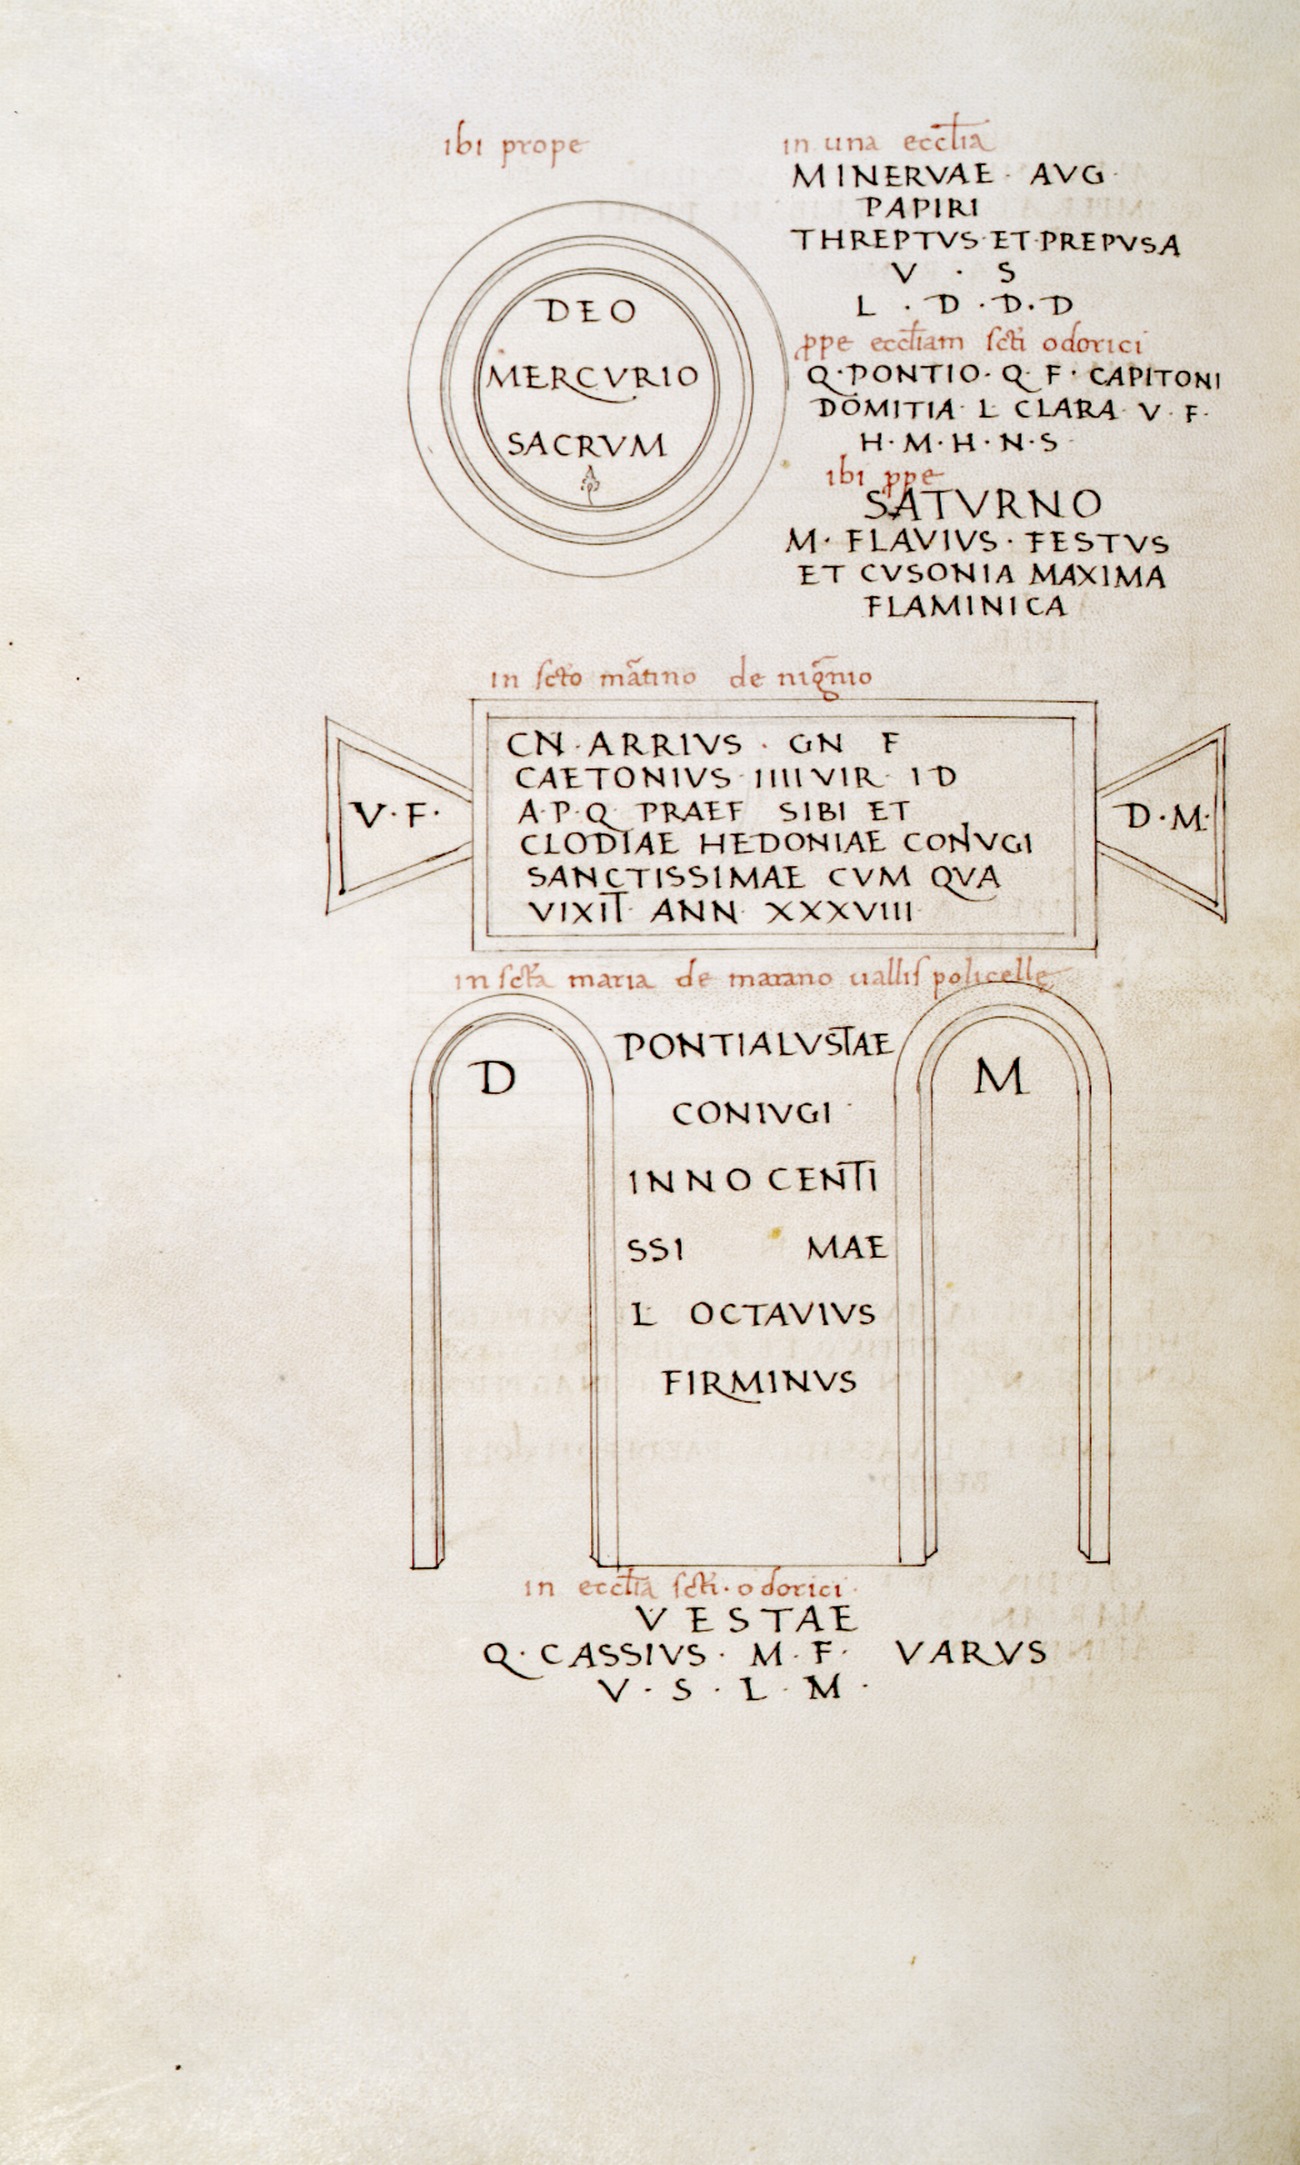 ibi prope
DEO
MERCVRIO
SACRVM
in una ecctia
MINERVAE · AVG ·
PAPIRI
THREPTVS · ET · PREPVSA
V · S
L · D · D · D
ppe ecctiam scti odorici
Q · PONTIO · Q · F · CAPITONI
DOMITIA · L · CLARA · V · F ·
H · M · H · N · S ·
ibi ppe
SATVRNO
M · FLAVIVS · FESTVS
ET CVSONIA MAXIMA
FLAMINICA
in scto matino de
V · F ·
CN · ARRIVS · GN F
CAETONIVS · IIIIVIR · I D
A · P · Q PRAEF SIBI ET
CLODIAE HEDONIAE CONVGI
SANCTISSIMAE CVM QVA
VIXIT ANN XXXVIII
D · M ·
in scta maria de marano uallis policelle
D
PONTIALVSTAE
CONIVGI ·
INNO CENTI
SSI MAE
L OCTAVIVS
FIRMINVS
M
in ecctia scti · odorici ·
VESTAE
Q · CASSIVS · M · F · VARVS
V · S · L · M ·